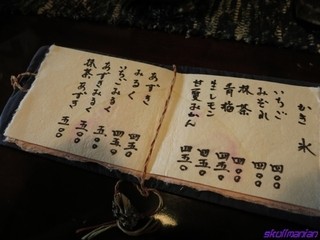 かき氷
いちご 四〇〇
みぞれ 四〇〇
抹茶 四〇〇
青梅 四五〇
生レモン 四五〇
甘夏みかん 四五〇
あずき 四五〇
みるく 四五〇
いちごみるく 五〇〇
あずきみるく 五五〇
抹茶あずき 五五〇
skullmanian